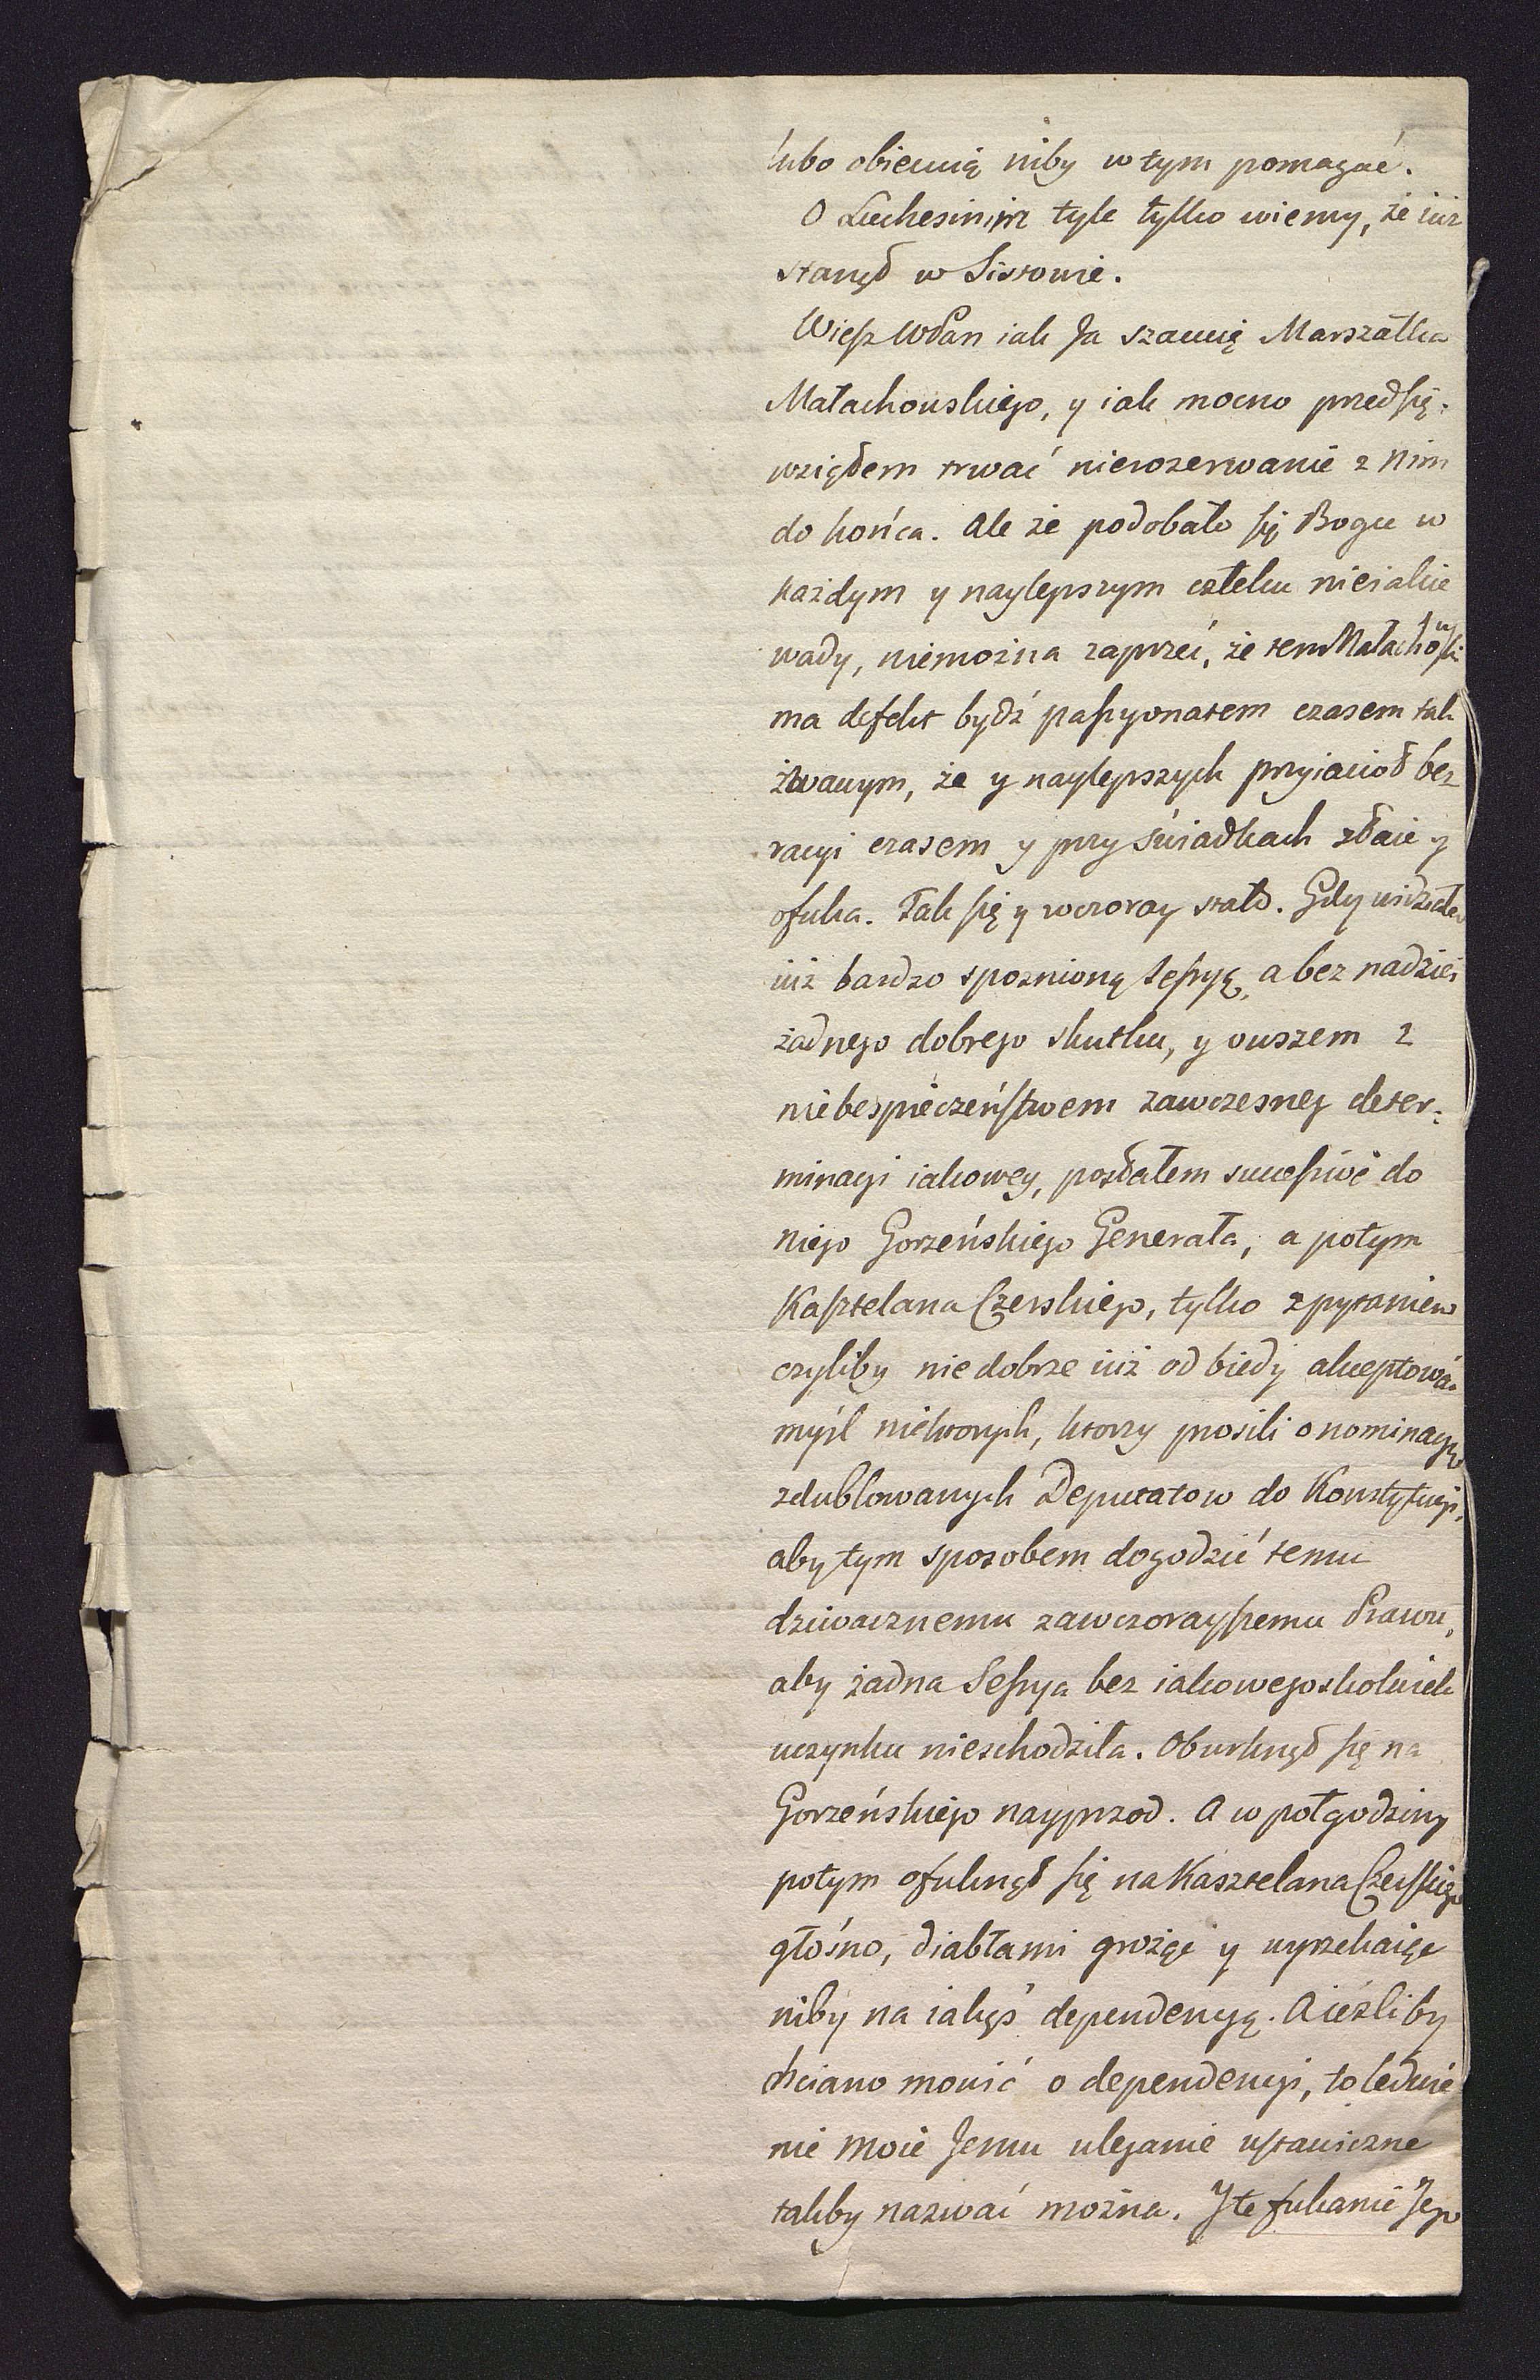 lubo obiecuią niby w tym pomagać.
O Luchesinim tyle tylko wiemy, że iuż
stanął w Sistowie.
Wiesz WPan iak Ja szacuię Marszałka
Małachowskiego, y iak mocno przedsię-
wziąłem trwać nierozerwanie z Nim
do końca. Ale że podobało się Bogu w
każdym y naylepszym człeku nieiakie
wady, niemożna zaprzeć, że ten Małachowski
ma defekt bydź passyonatem czasem tak
żwawym, że y naylepszych przyiaciół bez
racyi czasem y przy świadkach złaie y
ofuka. Tak się y wczoray stało. Gdy widziałem
iuż bardzo spoznioną Sessyą, a bez nadziei
żadnego dobrego skutku, y owszem z
niebespieczeństwem zawczesney deter-
minacyi iakowey, posłałem sucessivè do
niego Gorzeńskiego Generała, a potym
Kasztelana Czerskiego, tylko z pytaniem
czyliby nie dobrze iuż od biedy akceptowáć
myśl niektorych, ktorzy prosili o nominacyą
zdublowanych Deputatow do Konstytucyi,
aby tym sposobem dogodzić temu
dziwacznemu zawczorayszemu Prawu,
aby żadna Sessya bez iakowegożkolwiek
uczynku nieschodziła. Oburknął się na
Gorzeńskiego nayprzod. A w pół godziny
potym ofuknął się na Kasztelana Czerskiego
głośno, diabłami grożąc y wyrzekaiąc
niby na iakąś dependencyą. A ieżliby
chciano mowić o dependencyi, to ledwie
nie moie Jemu uleganie ustawiczne
takby nazwać można. Y te fukanie Jego